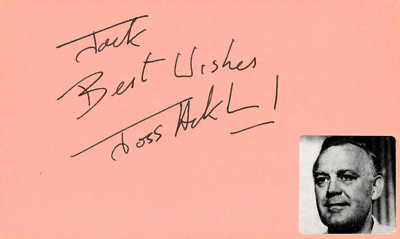 Jack
Best Wishes
Joss Ackl